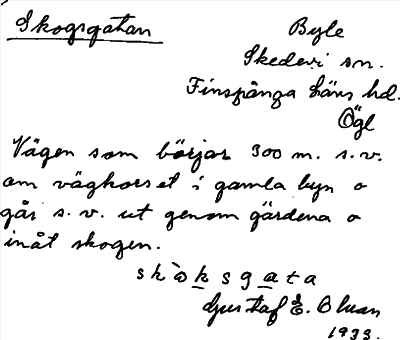 Skogsgatan
Byle
Skedevi sn.
Finspånga läns hd.
Ögl
Vägen som börjar 300 m. s.v.
om vägkorset i gamla byn o
går s.v. ut genom gärdena o
inåt skogen.
skòksgata
Gustaf E.
1933.